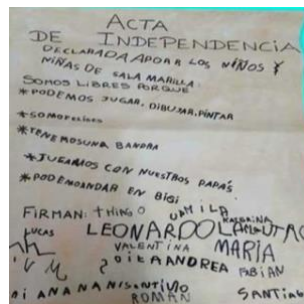 ACTA
DE INDEPENDENCIA
DECLARADA APOR LOS NIÑOS Y
NIÑAS DE SALA MARILLA:
SOMOS LIBRES PORQUE
*PODEMOS JUGAR, DIBUJAR, PINTAR
*SOMOS
*TENEMOSUNA BANDRA
*JUGAMOS CON NUESTROS PAPÁS
*PODEMOANDAR EN BISI
FIRMAN: THIAGO UAMILA
LUCAS LEONARDO LAUTAO
VALENTINA MARIA
ANDREA FABIAN
ROMÁN SANTIAG